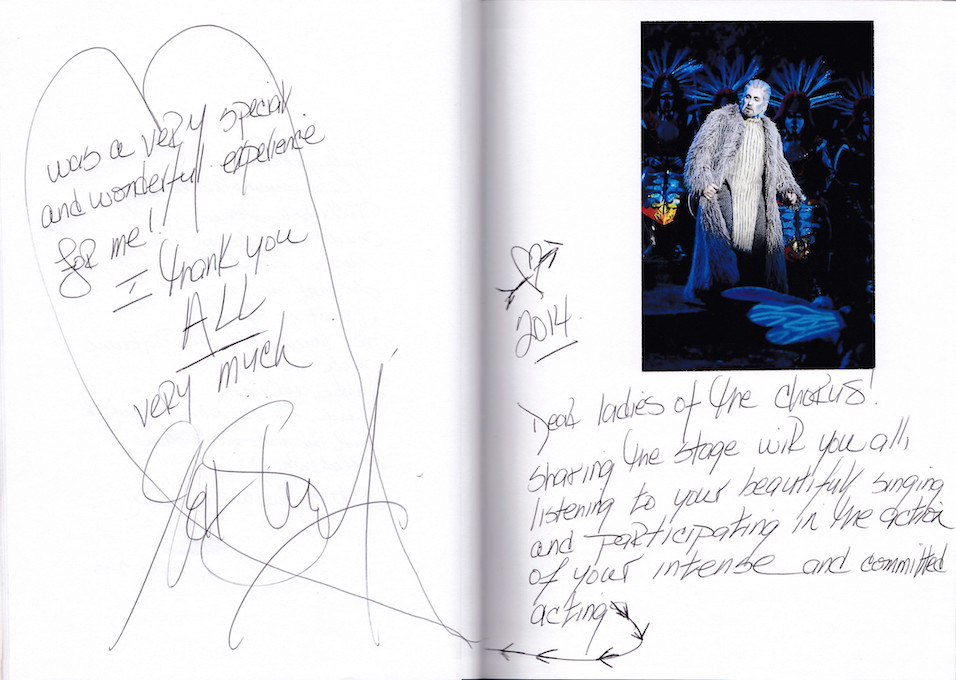 2014
Dear ladies of the chorus!
sharing the stage with you all,
listening to your beautiful singing
and participating in the action
of your intense and committed
acting
was a very special
and wonderful experience
for me!!
I thank you
ALL
very much